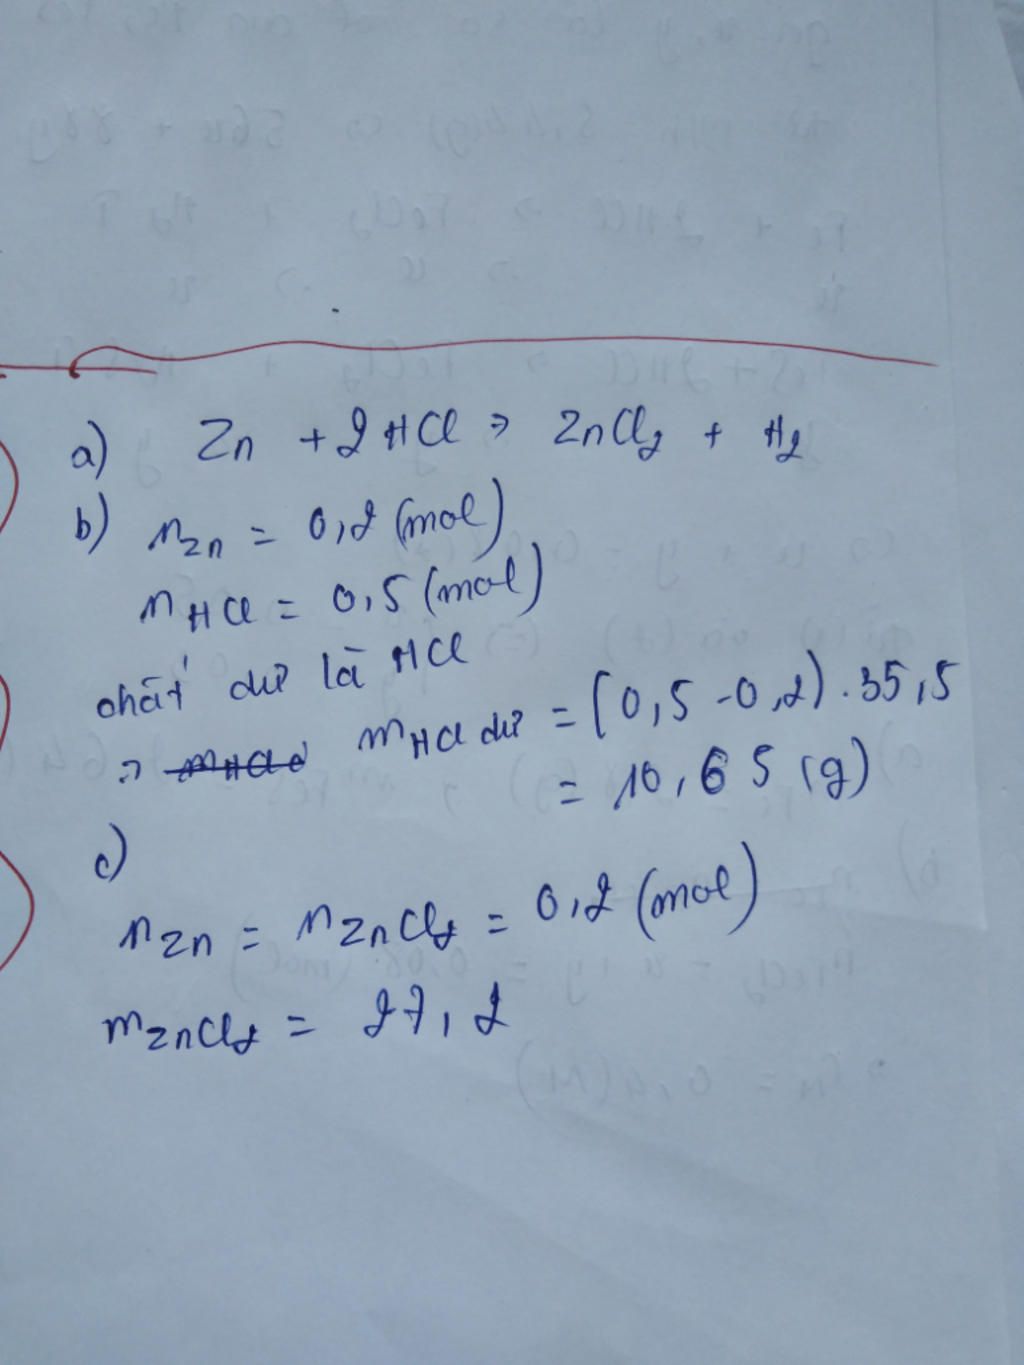 a) Zn + 2HCl → ZnCl₂ + H₂
b) nZn = 0,2 (mol)
nHCl = 0,5 (mol)
chất dư là HCl
→ mHCl dư = (0,5 - 0,2).35,5
= 10,65 (g)
c)
nZn = nZnCl₂ = 0,2 (mol)
mZnCl₂ = 27,2